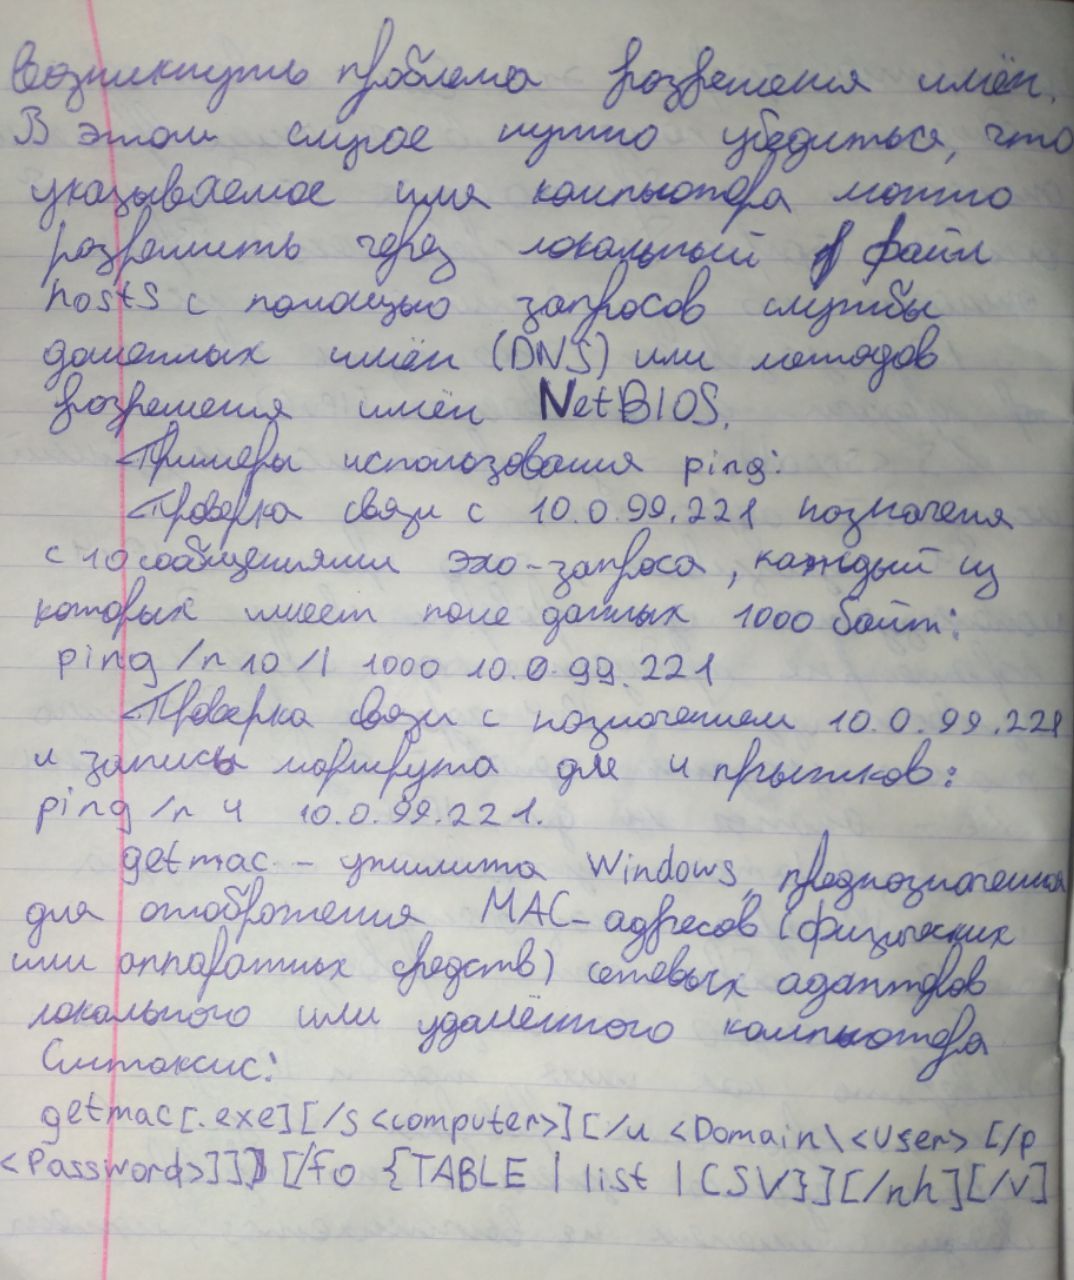 Возникнуть проблема разрешения имён.
В этом случае нужно убедиться, что
указываемое имя компьютера можно
разрешить через локальный файл
hosts с помощью запросов службы
доменных имён (DNS) или методов
разрешения имён NetBIOS.
Примеры использования ping:
Проверка связи с 10.0.99.221 назначения
с 10 сообщениями эхо-запроса, каждый из
которых имеет поле данных 1000 байт:
ping /n 10 /l 1000 10.0.99.221
Проверка связи с назначением 10.0.99.221
и запись маршрута для 4 прыжков:
ping /n 4 10.0.99.221.
getmac - утилита Windows, предназначенная
для отображения MAC-адресов (физических
или аппаратных средств) сетевых адаптеров
локального или удалённого компьютера
Синтаксис:
getmac[.exe][/s <computer>][/u <Domain\<User> [/p
<Password>]]] [/fo {TABLE | list | CSV}][/nh][/v]